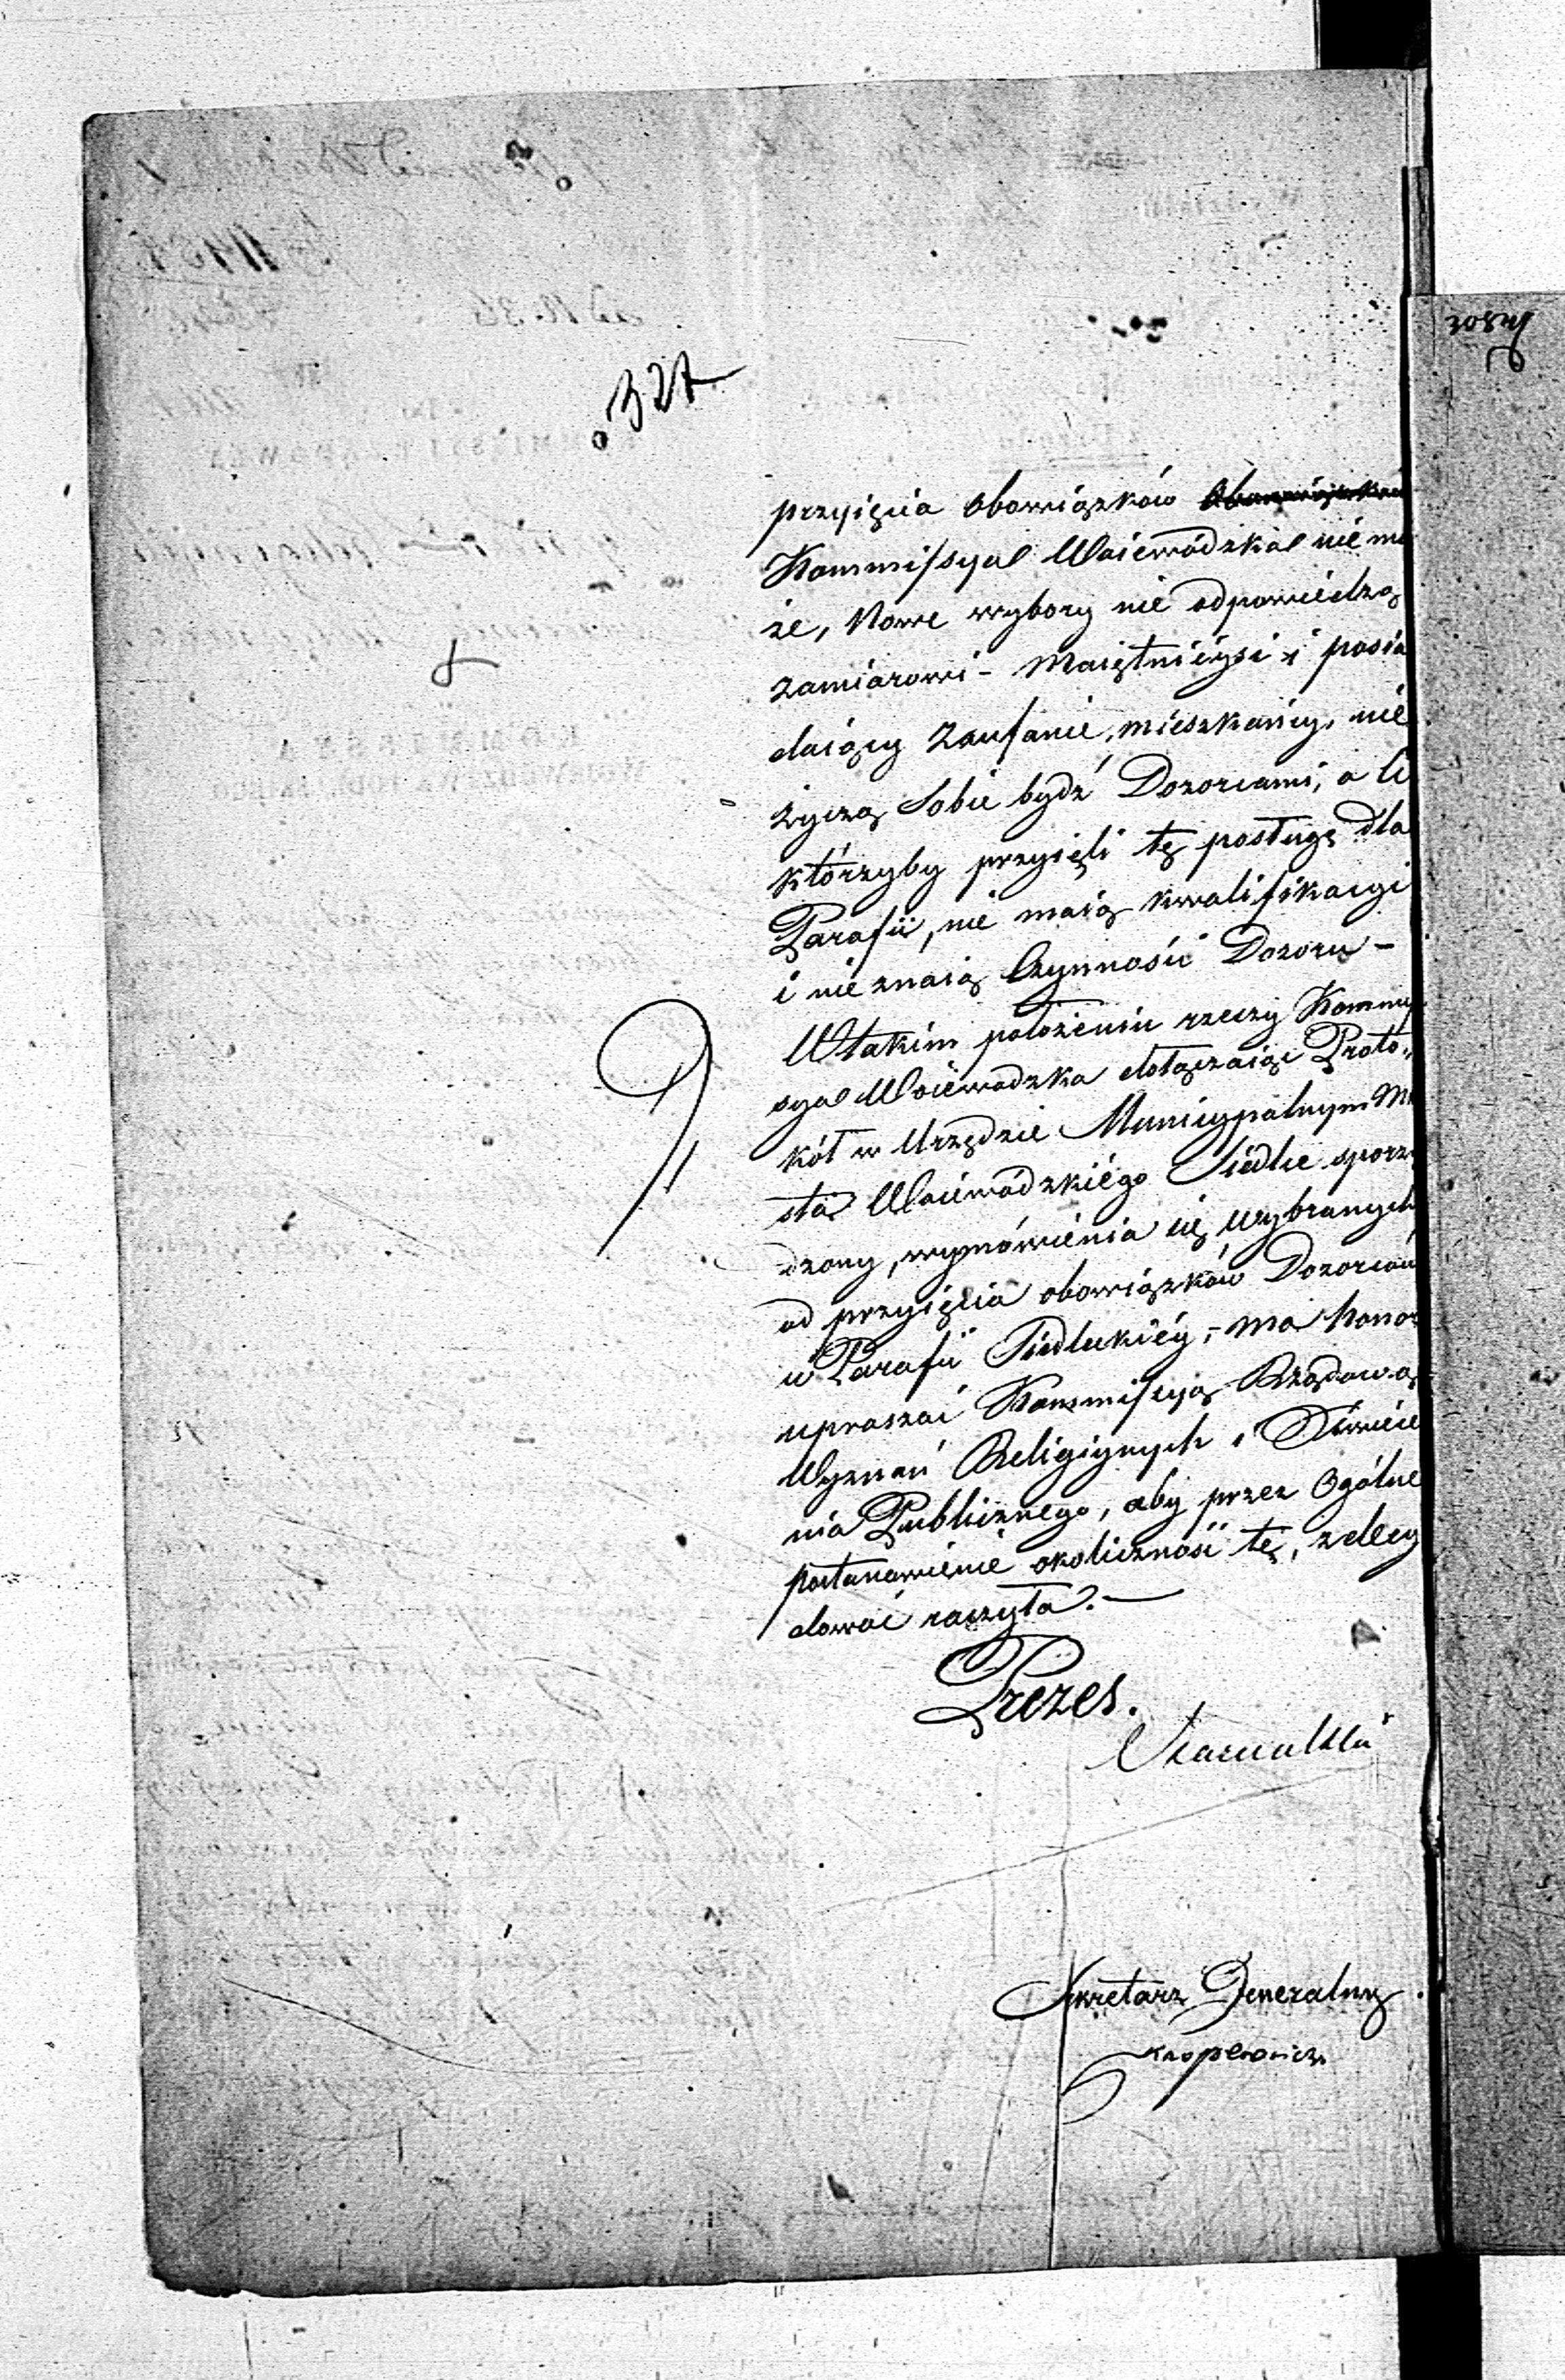 327
przyięcia obowiązków
Kommissya Woiewódzka nie
że, Nowe wybory nie odpowiedzą
zamiarowi - Maiętnieysi i posia
daiący Zaufanie, mieszkańcy, nie
życzą Sobie bydź Dozorcami, a Ci
którzyby przyięli tę posługę dla
Parafii, nie maią kwalifikacyi
i nie znaią Czynności Dozoru -
W takim położeniu rzeczy Kommis
sya Woiewodzka dołączaiąc Proto„
kół w Urzędzie Municypalnym Mia
sta Woiewódzkiégo Siedlce sporzą
dzony, wymówienia się wybranych
od przyięcia obowiązków Dozorców
w Parafii Siedleckiéy, - ma honor
upraszać Kommissyą Rządową
Wyznań Religiynych i Oświece
nia Publicznego, aby przez Ogólne
postanowienie okoliczność tę, zdecy
dować raczyła. —
Prezes.
Sekretarz Generalny